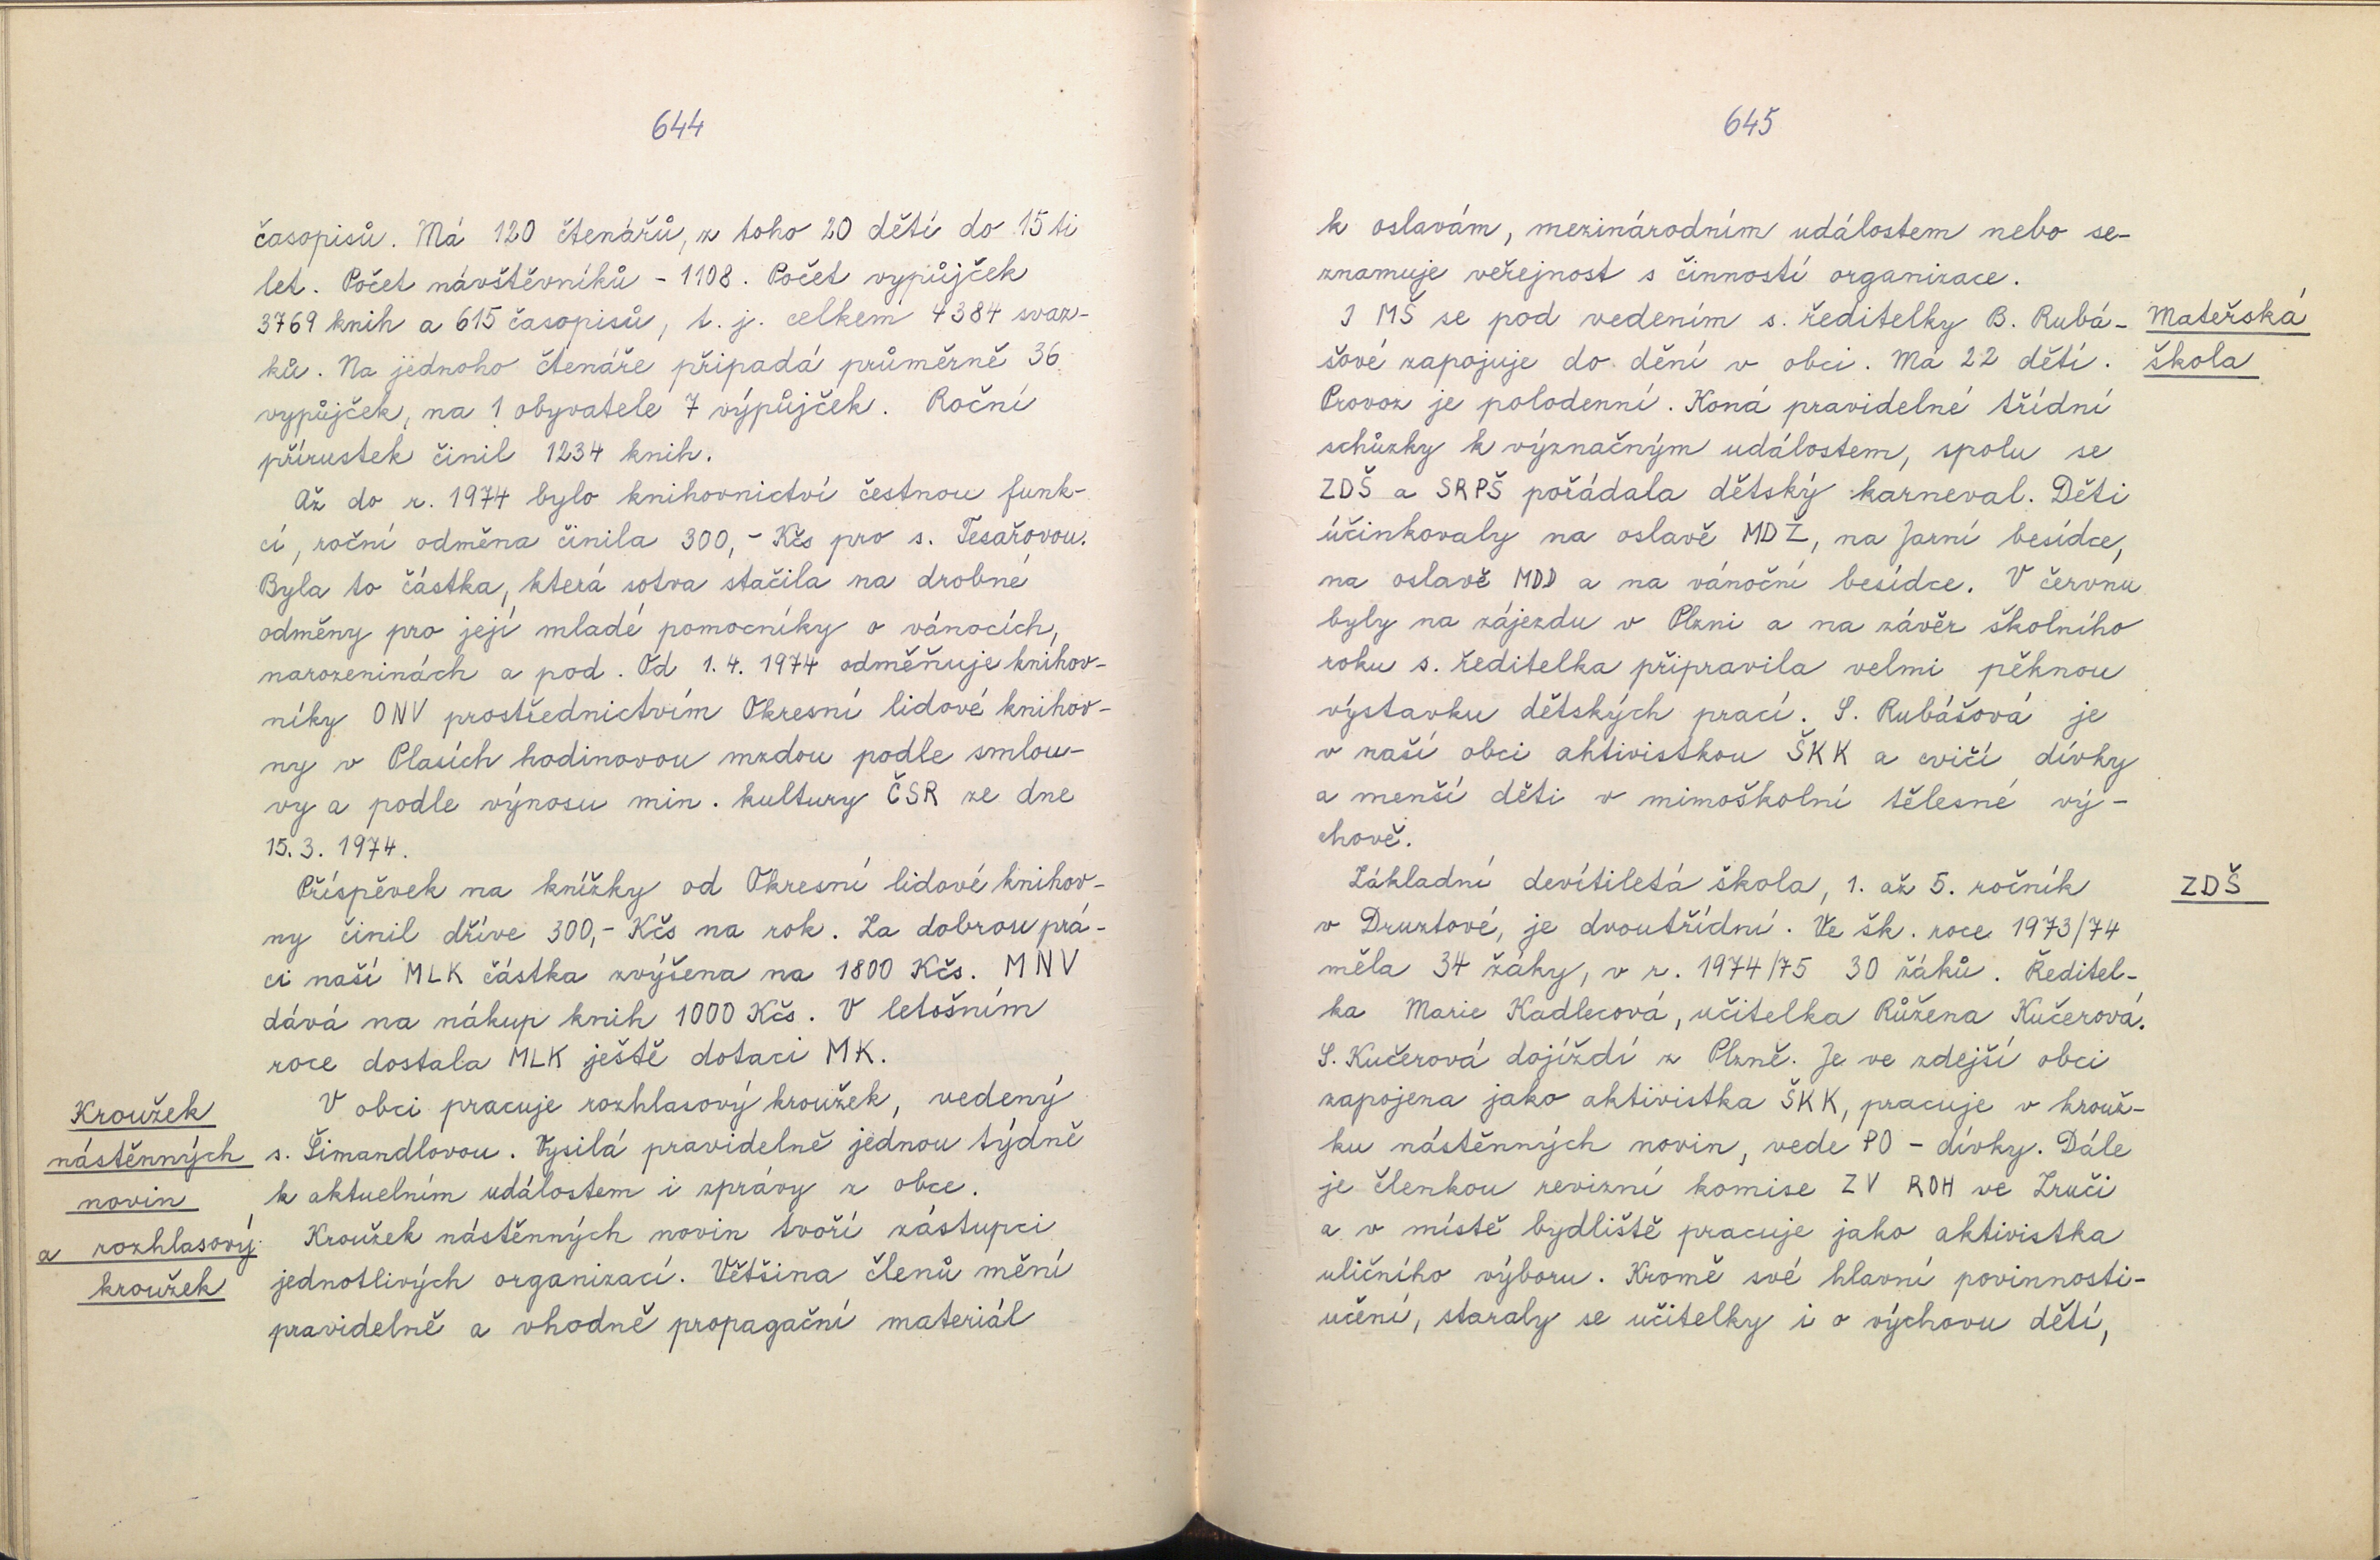 644
časopisů. Má 120 čtenářů, z toho 20 dětí do 15ti
let. Počet návštěvníků - 1108. Počet vypůjček
3769 knih a 615 časopisů, t. j. celkem 4384 svaz-
ků. Na jednoho čtenáře připadá průměrně 36
vypůjček, na 1 obyvatele 7 výpůjček. Roční
přírustek činil 1234 knih.
Až do r. 1974 bylo knihovnictví čestnou funk-
cí, roční odměna činila 300,- Kčs pro s. Tesařovou.
Byla to částka, která sotva stačila na drobné
odměny pro její mladé pomocníky o vánocích,
narozeninách a pod. Od 1. 4. 1974 odměňuje knihov-
níky ONV prostřednictvím Okresní lidové knihov-
ny v Plasích hodinovou mzdou podle smlou-
vy a podle výnosu min. kultury ČSR ze dne
15. 3. 1974.
Příspěvek na knížky od Okresní lidové knihov-
ny činil dříve 300,- Kčs na rok. Za dobrou prá-
ci naší MLK částka zvýšena na 1800 Kčs. MNV
dává na nákup knih 1000 Kčs. V letošním
roce dostala MLK ještě dotaci MK.
Kroužek
nástěnných
novin
a rozhlasový
kroužek
V obci pracuje rozhlasový kroužek, vedený
s. Šimandlovou. Vysílá pravidelně jednou týdně
k aktuelním událostem i zprávy z obce.
Kroužek nástěnných novin tvoří zástupci
jednotlivých organizací. Většina členů mění
pravidelně a vhodně propagační materiál
645
k oslavám, mezinárodním událostem nebo se-
znamuje veřejnost s činností organizace.
Mateřská
škola
I MŠ se pod vedením s. ředitelky B. Rubá-
šové zapojuje do dění v obci. Má 22 dětí.
Provoz je polodenní. Koná pravidelné třídní
schůzky k význačným událostem, spolu se
ZDŠ a SRPŠ pořádala dětský karneval. Děti
účinkovaly na oslavě MDŽ, na Jarní besídce,
na oslavě MDD a na vánoční besídce. V červnu
byly na zájezdu v Plzni a na závěr školního
roku s. ředitelka připravila velmi pěknou
výstavku dětských prací. S. Rubášová je
v naší obci aktivistkou ŠKK a cvičí dívky
a menší děti v mimoškolní tělesné vý-
chově.
ZDŠ
Základní devítiletá škola, 1. až 5. ročník
v Druztové, je dvoutřídní. Ve šk. roce 1973/74
měla 34 žáky, v r. 1974/75 30 žáků. Ředitel-
ka Marie Kadlecová, učitelka Růžena Kučerová.
S. Kučerová dojíždí z Plzně. Je ve zdejší obci
zapojena jako aktivistka ŠKK, pracuje v krouž-
ku nástěnných novin, vede PO - dívky. Dále
je členkou revizní komise ZV ROH ve Zruči
a v místě bydliště pracuje jako aktivistka
uličního výboru. Kromě své hlavní povinnosti-
učení, staraly se učitelky i o výchovu dětí,